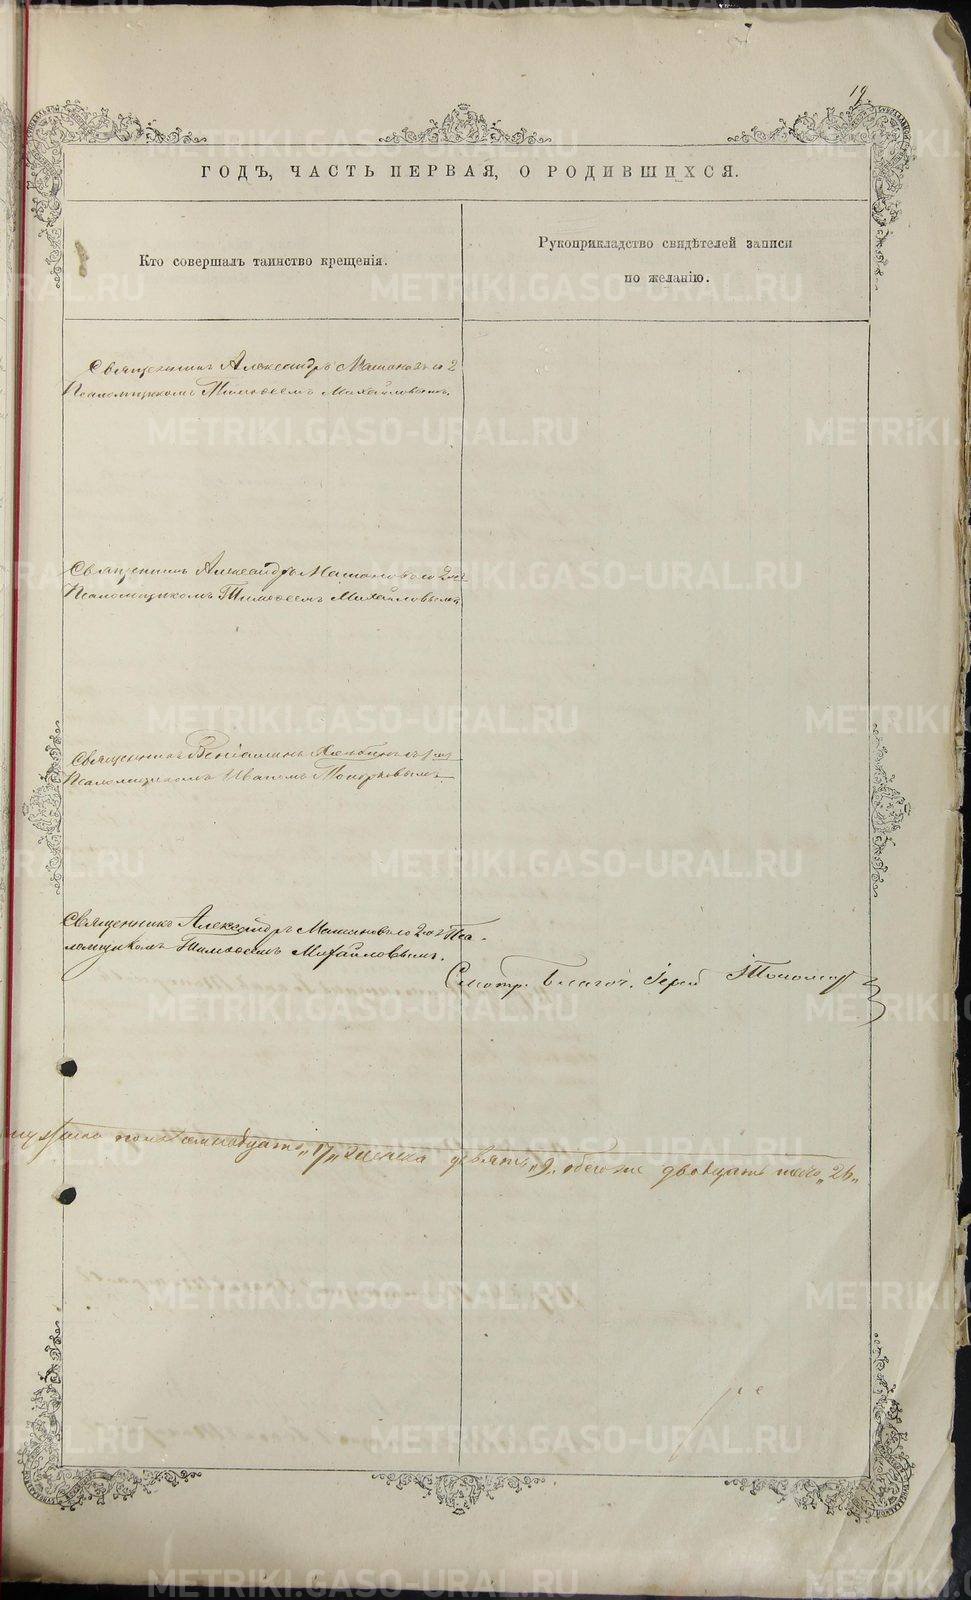 19
ГОДЪ, ЧАСТЬ ПЕРВАЯ, О РОДИВШИХСЯ.
Кто совершалъ таинство крещенія.
Рукоприкладство свидѣтелей записи
по желанію.
Священникъ Александръ 2
Псаломщикомъ Тимоѳеемъ Михайловымъ.
Священникъ Александръ
Псаломщикомъ Тимоѳеемъ Михайловымъ
Священникъ Веніаминъ
Псаломщикомъ Иваномъ
Священникъ Александръ Пса-
ломщикомъ Тимоѳеемъ Михайловымъ.
Смотр. Благоч. Іерей
пола семнадцать „17„ женска девять „9„ обоего же двадцать шесть „26„
METRIKI.GASO-URAL.RU